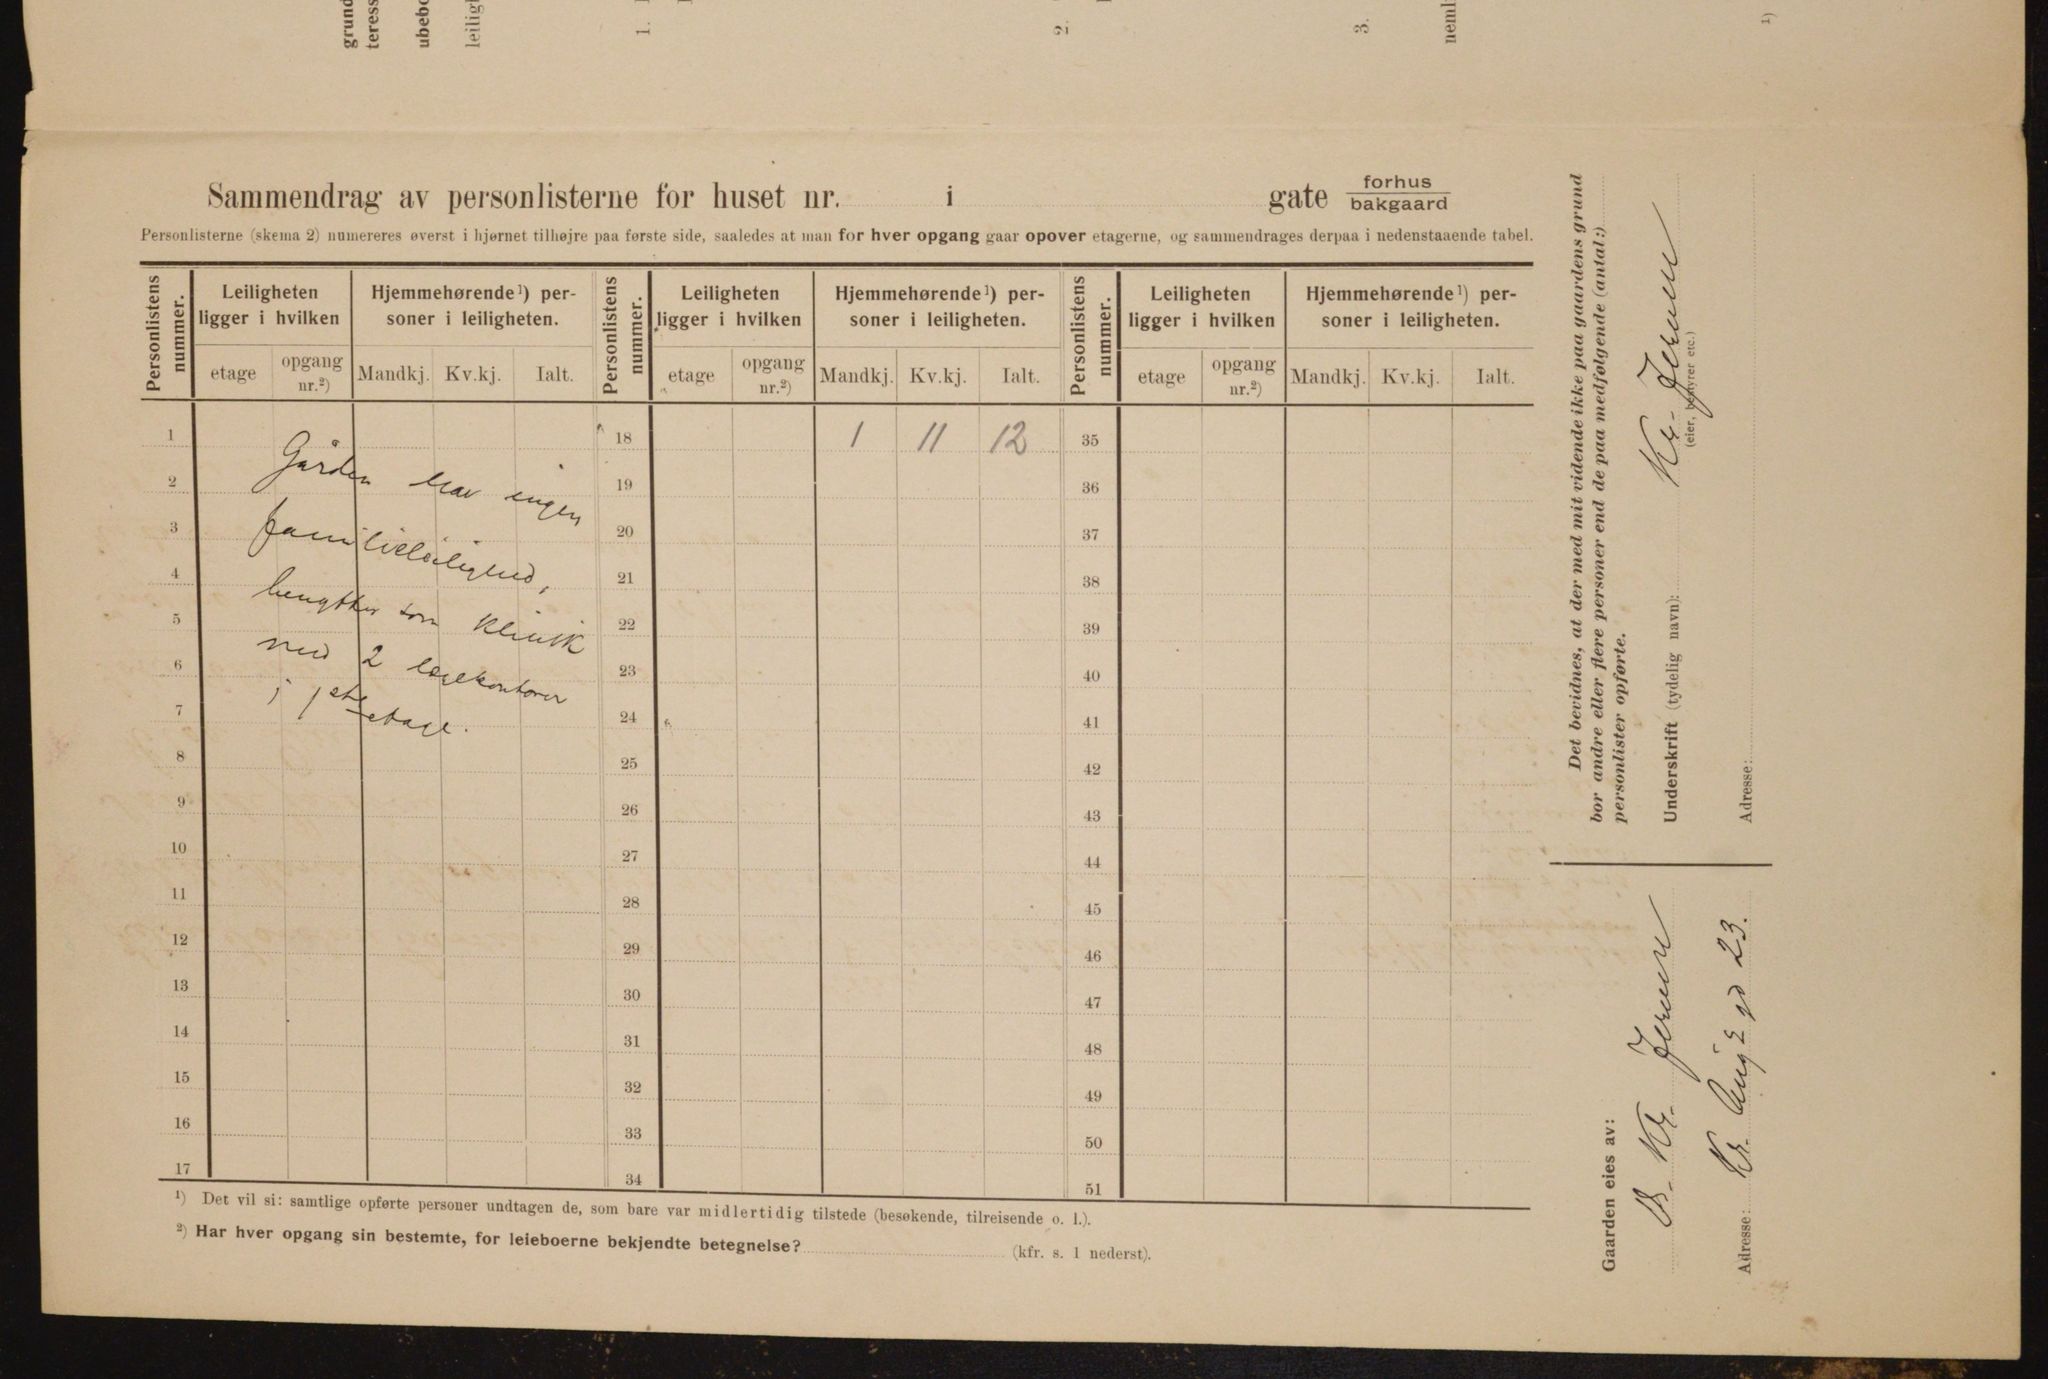 grund
teress
ubebo
leiligh
1.
2.
3.
neml
1)
Sammendrag av personlisterne for huset nr. i gate forhus
bakgaard
Personlisterne (skema 2) numereres øverst i hjørnet tilhøjre paa første side, saaledes at man for hver opgang gaar opover etagerne, og sammendrages derpaa i nedenstaaende tabel.
Personlistens nummer. Leiligheten ligger i hvilken Hjemmehørende¹) personer i leiligheten. Personlistens nummer. Leiligheten ligger i hvilken Hjemmehørende¹) personer i leiligheten. Personlistens nummer. Leiligheten ligger i hvilken Hjemmehørende¹) personer i leiligheten.
etage opgang nr.²) Mandkj. Kv.kj. Ialt. etage opgang nr.²) Mandkj. Kv.kj. Ialt. etage opgang nr.²) Mandkj. Kv.kj. Ialt.
1 18 1 11 12 35
Gården har ingen
2 19 36
familieleilighed,
3 20 37
4 21 38
benyttes som klinik
5 22 39
med 2 lægekontorer
6 23 40
i 1ste etage.
7 24 41
8 25 42
9 26 43
10 27 44
11 28 45
12 29 46
13 30 47
14 31 48
15 32 49
16 33 50
17 34 51
¹) Det vil si: samtlige opførte personer undtagen de, som bare var midlertidig tilstede (besøkende, tilreisende o. l.).
²) Har hver opgang sin bestemte, for leieboerne bekjendte betegnelse? (kfr. s. 1 nederst).
Det bevidnes, at der med mit vidende ikke paa gaardens grund
bor andre eller flere personer end de paa medfølgende (antal:)
personlister opførte.
Underskrift (tydelig navn): Kr. Jensen
(eier, bestyrer etc.)
Adresse:
Gaarden eies av:
Kr. Jensen
Adresse: Kr. Aug's gd 23.